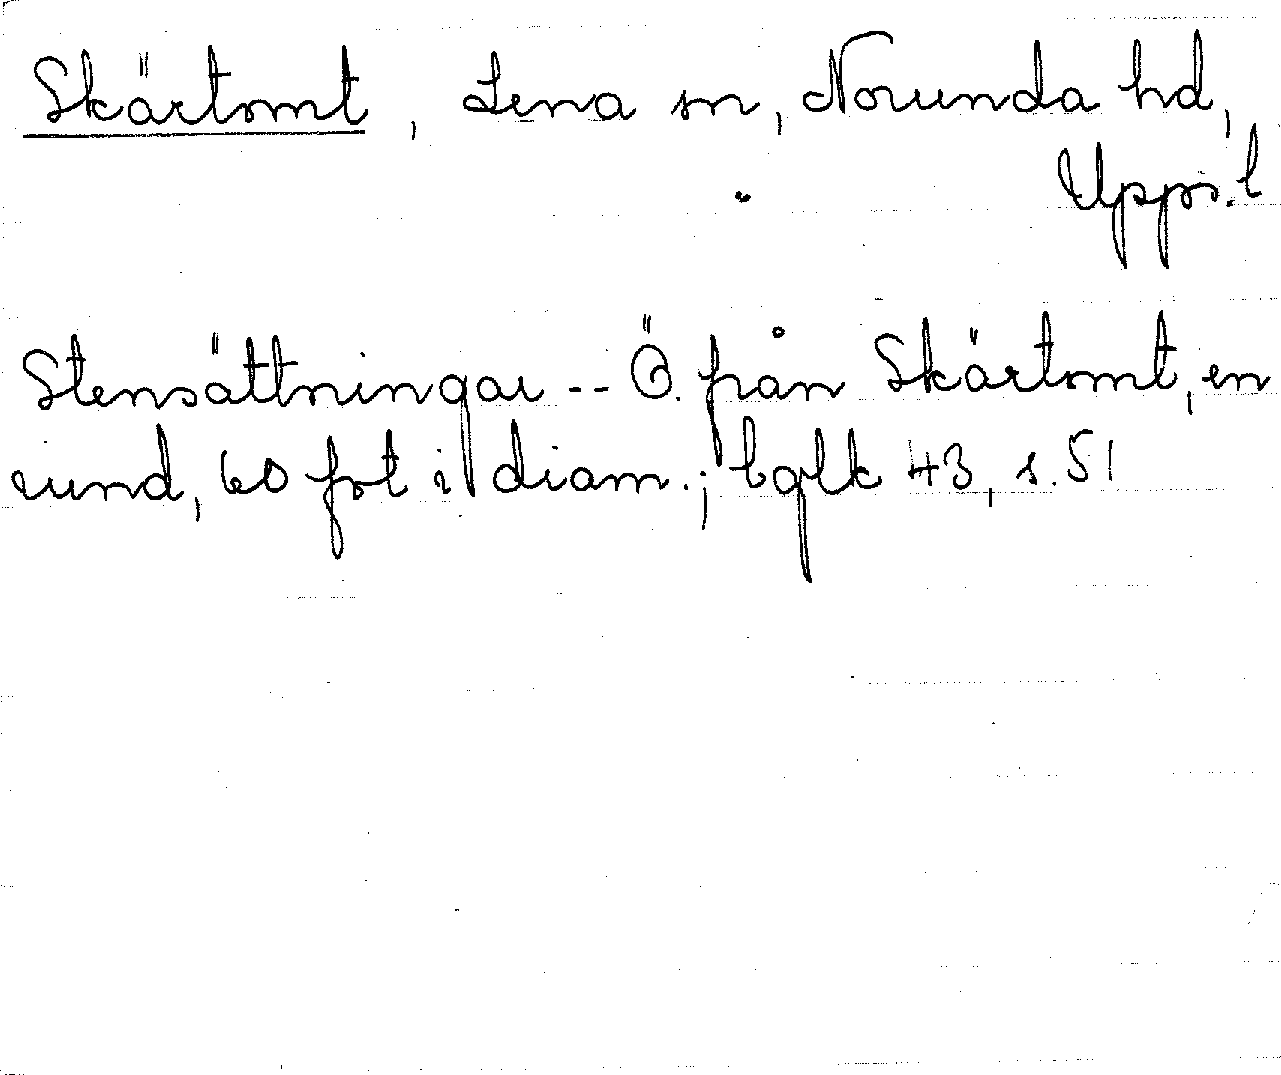 Skärtomt, Lena sn, Norunda hd,
Upps. l
Stensättningar -- Ö. från Skärtomt, en
rund, 60 fot i diam.; bglk 43, s. 51